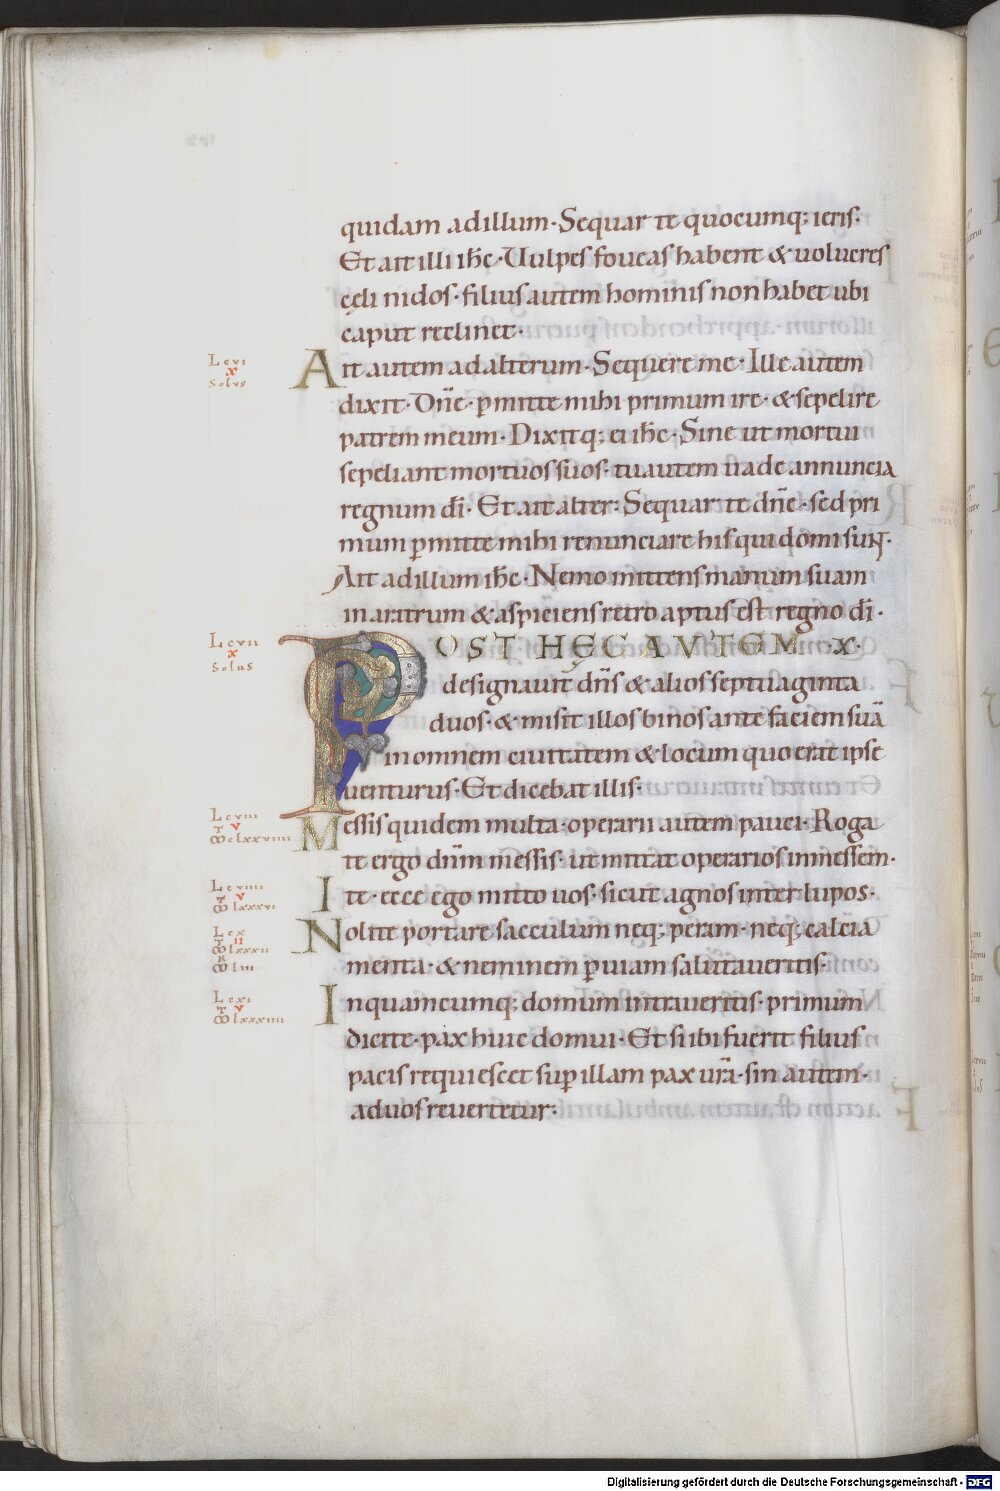 quidam ad illum· Sequar te quocumq; ieris·
Et ait illi ihc̄· Uulpes foueas habent & uolucres
cęli nidos· filius autem hominis non habet ubi
caput reclinet·
L cvi
x
Solus
Ait autem ad alterum· Sequere me· Ille autem
dixit· Dn̄e· p̄mitte mihi primum ire· & sepelire
patrem meum· Dixitq; ei ihc̄· Sine ut mortui
sepeliant mortuos suos· tu autem uade annuncia
regnum dī· Et ait alter· Sequar te dn̄e· sed pri
mum p̄mitte mihi renunciare his qui domi sunt·
Ait ad illum ihc̄· Nemo mittens manum suam
in aratrum & aspiciens retro aptus est regno dī·
L cvii
x
Solus
POST HĘC AVTEM x·
designauit dn̄s & alios septuaginta
duos· & misit illos binos ante faciem suā
in omnem ciuitatem & locum quo erat ipse
uenturus· Et dicebat illis·
L cviii
v
Messis quidem multa· operarii autem pauci· Roga
te ergo dn̄m messis· ut mittat operarios in messem·
L cviiii
v
lxxxvi
Ite· ecce ego mitto uos· sicut agnos inter lupos·
L cx
ii
lxxxii
liii
Nolite portare sacculum neq; peram· neq; calcia
menta· & neminem p̄ uiam salutaueritis·
L cxi
v
lxxxiiii
In quamcumq; domum intraueritis· primum
dicite· pax huic domui· Et si ibi fuerit filius
pacis requiescet sup̄ illam pax urā· sin autem·
ad uos reuertetur·
Digitalisierung gefördert durch die Deutsche Forschungsgemeinschaft - DFG